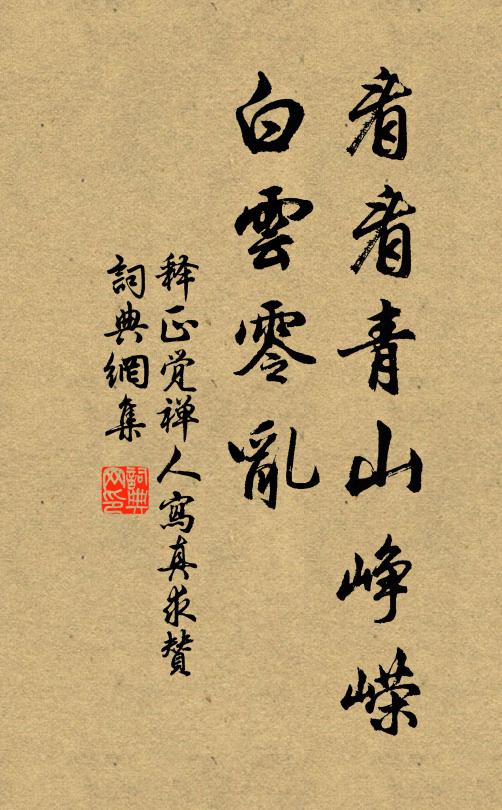 看看青山峥嵘
白雲零亂
释正觉禅人寫真求赞
詞典網集
詞典
网印